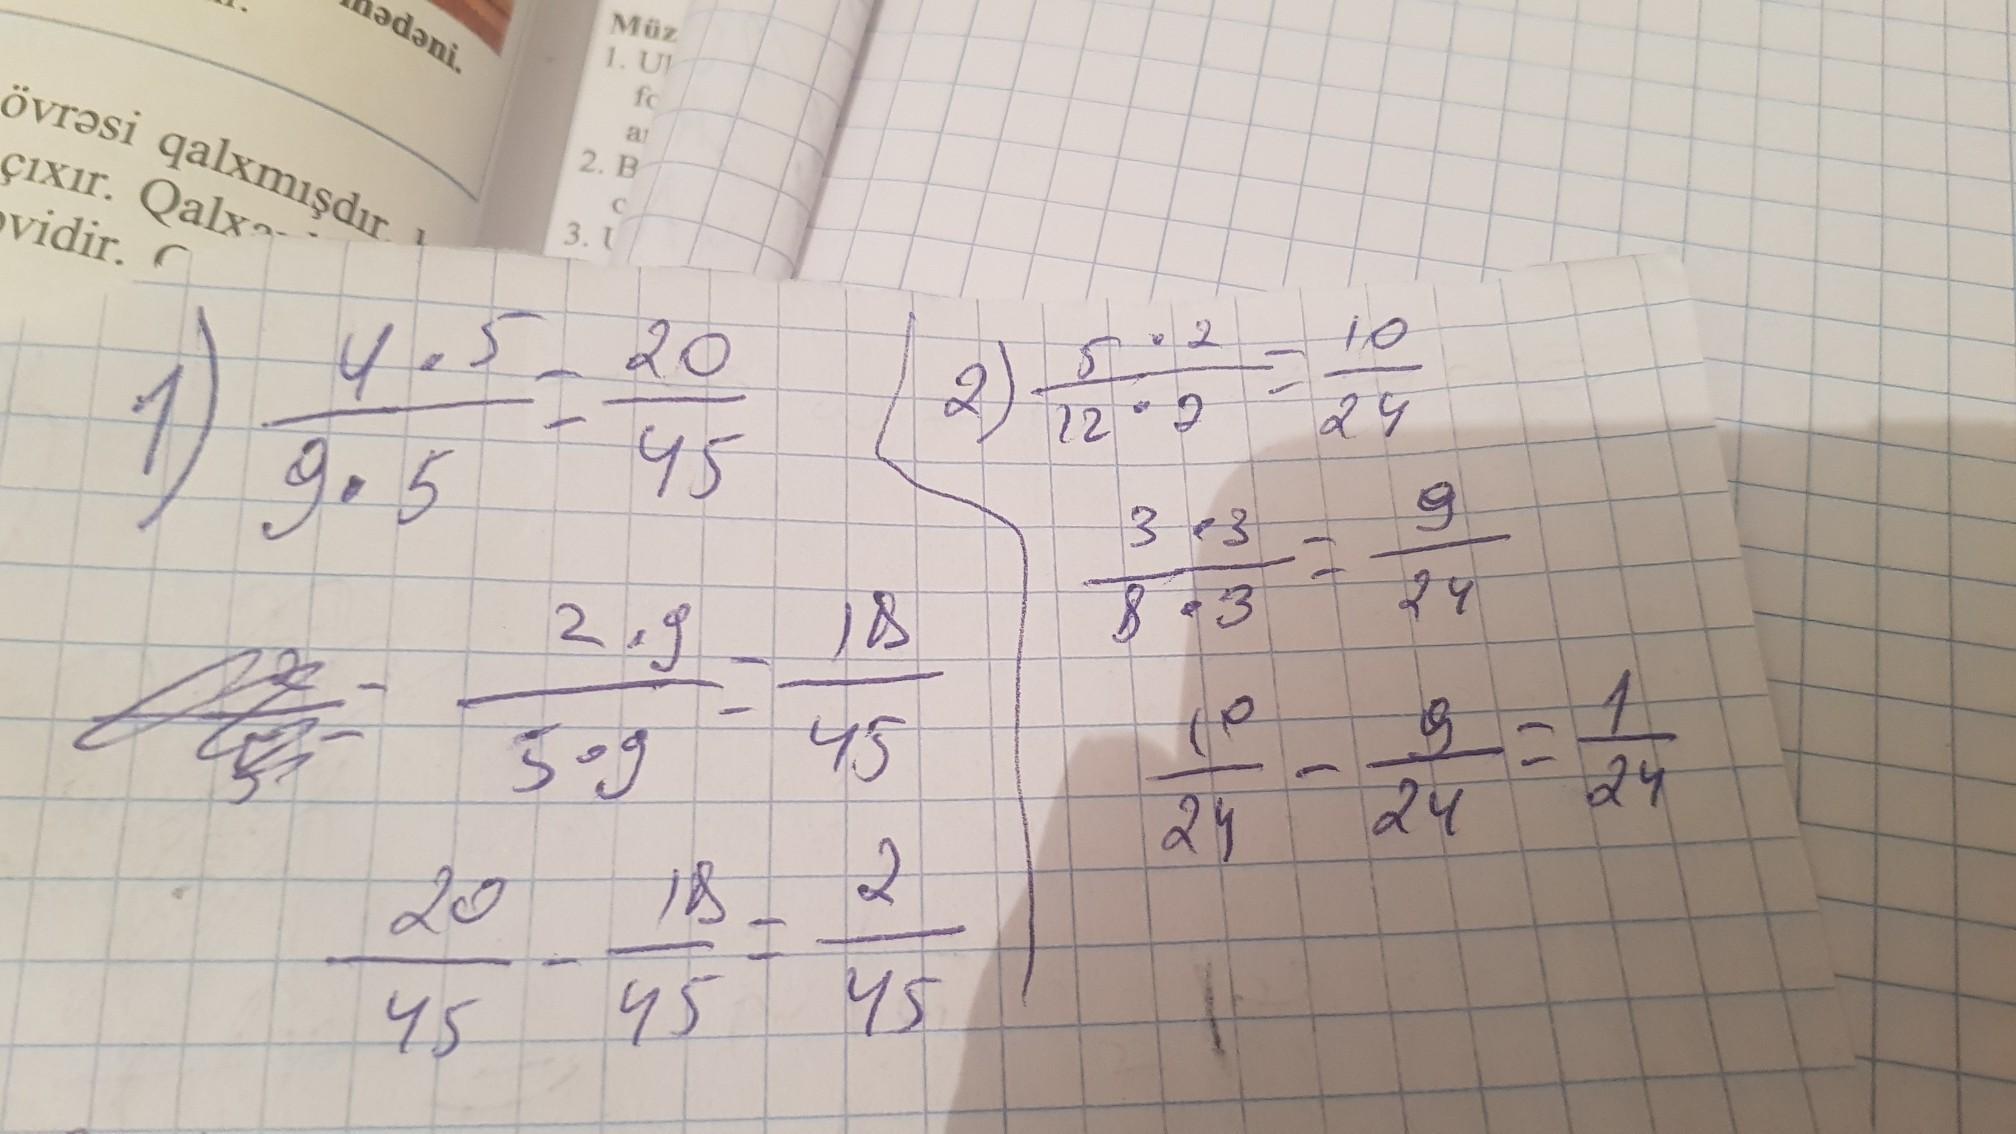 mədəni.
övrəsi qalxmışdır.
çıxır.
vidir.
Müz
1. U
fo
2. B
c
3. U
1) 4 · 5 / 9 · 5 = 20 / 45
2 · 9 / 5 · 9 = 18 / 45
20 / 45 - 18 / 45 = 2 / 45
2) 5 · 2 / 12 · 2 = 10 / 24
3 · 3 / 8 · 3 = 9 / 24
10 / 24 - 9 / 24 = 1 / 24